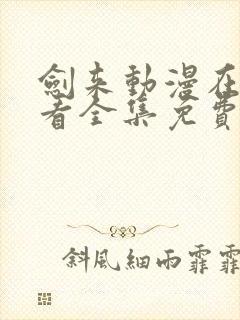 劍来動漫在
看全集免費
斜風細雨霏霏